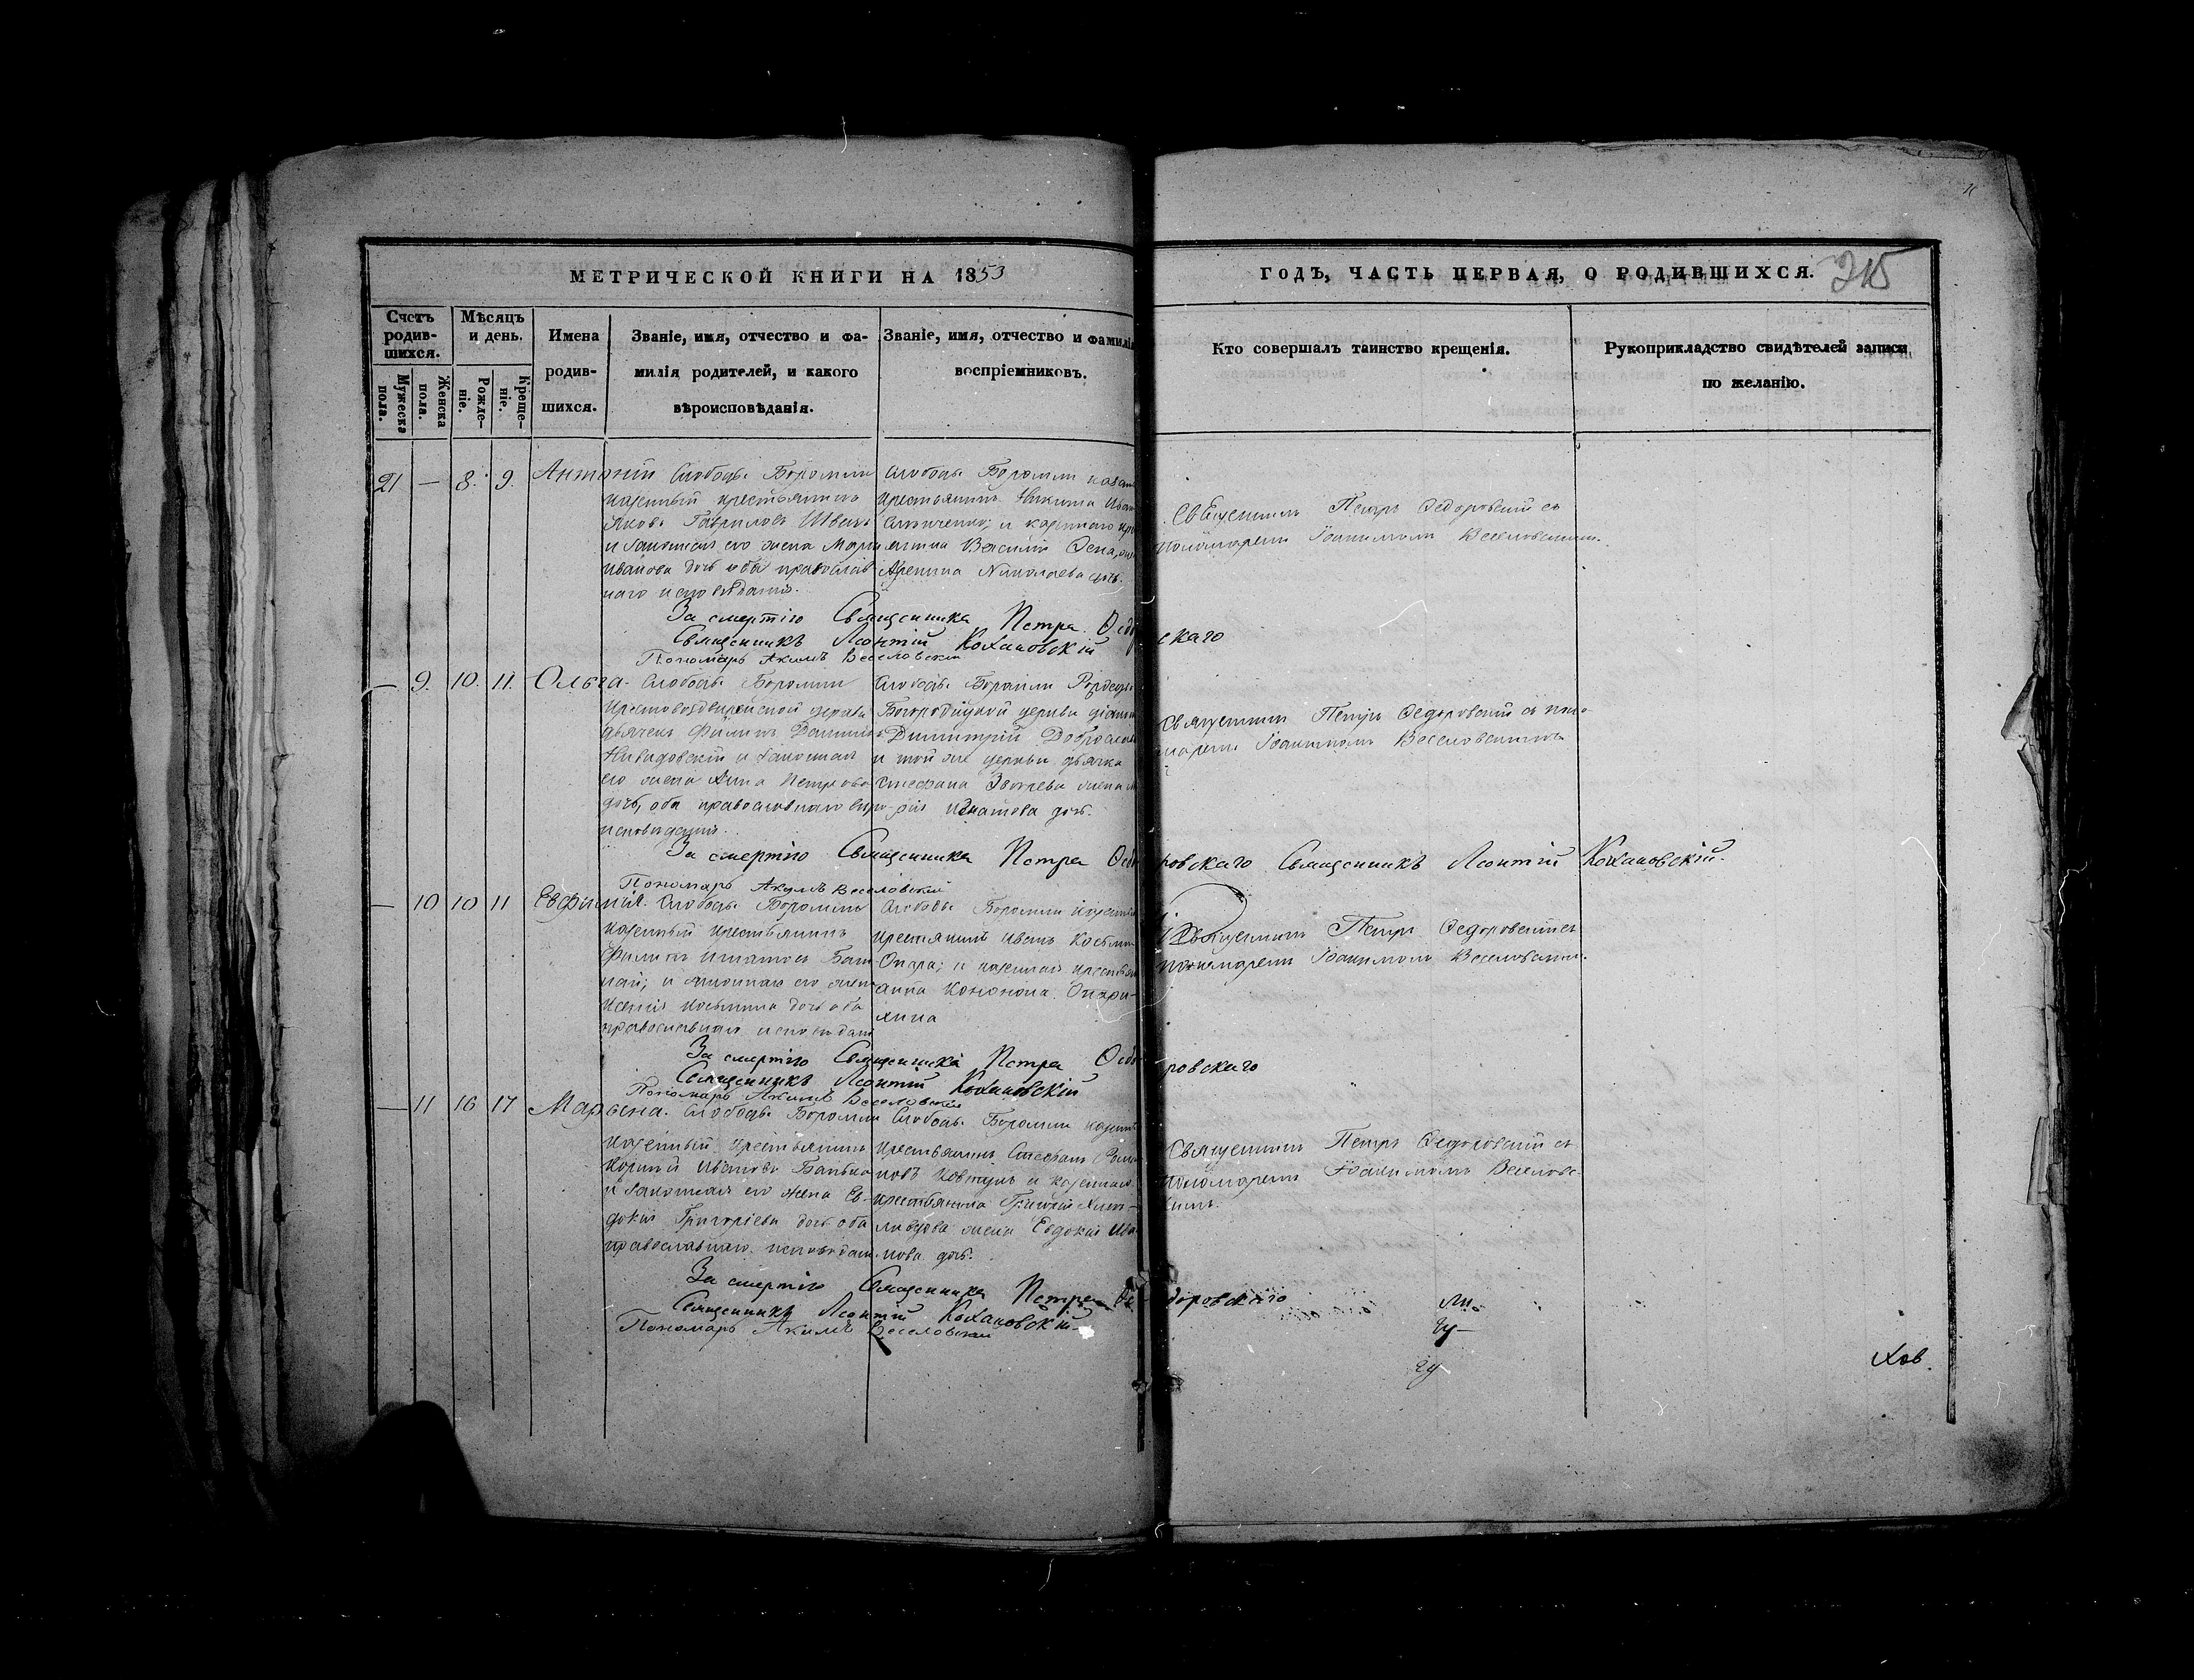 МЕТРИЧЕСКОЙ КНИГИ НА 1853
ГОДЪ, ЧАСТЬ ПЕРВАЯ, О РОДИВШИХСЯ.
215
Счетъ родив-шихся.
Мужеска пола.
Женска пола.
Мѣсяцъ и день.
Рожде-ніе.
Креще-ніе.
Имена родив-шихся.
Званіе, имя, отчество и фа-
милія родителей, и какого
вѣроисповѣданія.
Званіе, имя, отчество и фамилія
воспріемниковъ.
Кто совершалъ таинство крещенія.
Рукоприкладство свидѣтелей записи
по желанію.
21 — 8. 9. Антоній
Слободы Боромли
казенный крестьянинъ
Яковъ Гавриловъ Швецъ
и законная его жена Марія
Иванова дочь оба православ
наго исповѣданія.
Слободы Боромли казен
крестьянинъ Никита Иван
и казеннаго кре
янина Василія
Николаева дочь.
Священникъ Петръ Федоровскій съ
пономаремъ Іоакимомъ Веселовскимъ.
За смертію Священника Петра Федоровскаго
Священникъ Леонтій Кохановскій
Пономарь Акимъ Веселовскій
— 9. 10. 11. Ольга.
Слободы Боромли
Крестовоздвиженской церкви
дьячекъ Филипъ
и законная
его жена Анна Петрова
дочь, оба православнаго
исповѣданія.
Слободы Боромли Рождество
Богородицкой церкви
Димитрій
и той же церкви дьячка
Стефана жена
Игнатова дочь.
Священникъ Петръ Федоровскій съ поно
маремъ Іоакимомъ Веселовскимъ
За смертію Священника Петра Федоровскаго Священникъ Леонтій Кохановскій.
Пономарь Акимъ Веселовскій
— 10 10 11 Евфимія.
Слободы Боромли
казенный крестьянинъ
Филипъ Игнатовъ
и законная его жена
Ксенія Косьмина дочь оба
православнаго исповѣдан
Слободы Боромли казенный
крестьянинъ Иванъ Косьмин
Опара; и казенная крестьян
Анна Кононова Опари-
Священникъ Петръ Федоровскій съ
пономаремъ Іоакимомъ Веселовскимъ.
За смертію Священника Петра Федоровскаго
Священникъ Леонтій Кохановскій
Пономарь Акимъ Веселовскій
— 11 16 17 Марьяна.
Слободы Боромли
казенный крестьянинъ
Корній Ивановъ Батько
и законная его жена Ев-
докія Григоріева дочь оба
православнаго исповѣдан.
Слободы Боромли казен
крестьянинъ Стефанъ Рома
новъ Ковтунъ и казеннаго
крестьянина Григорія
жена Евдокія Ива
нова дочь.
Священникъ Петръ Федоровскій съ
пономаремъ Іоакимомъ Веселовс-
кимъ.
За смертію Священника Петра Федоровскаго
Священникъ Леонтій Кохановскій
Пономарь Акимъ Веселовскій